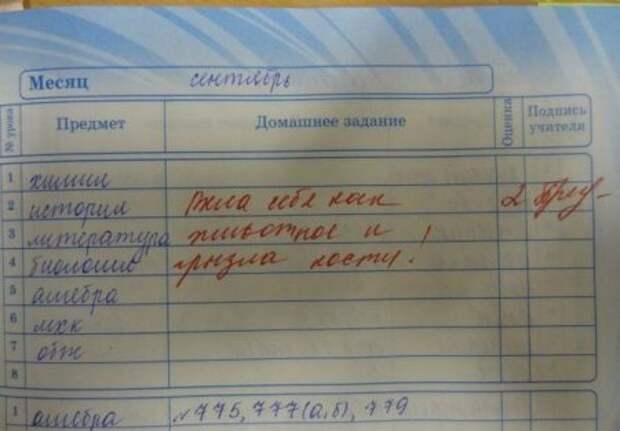 Месяц сентябрь
№ урока Предмет Домашнее задание Оценка Подпись учителя
1 химия
2 история Вела себя как 2
3 литература животное и
4 биология грызла кости!
5 алгебра
6 мхк
7 обж
8
1 алгебра №775, 777(а,б), 779